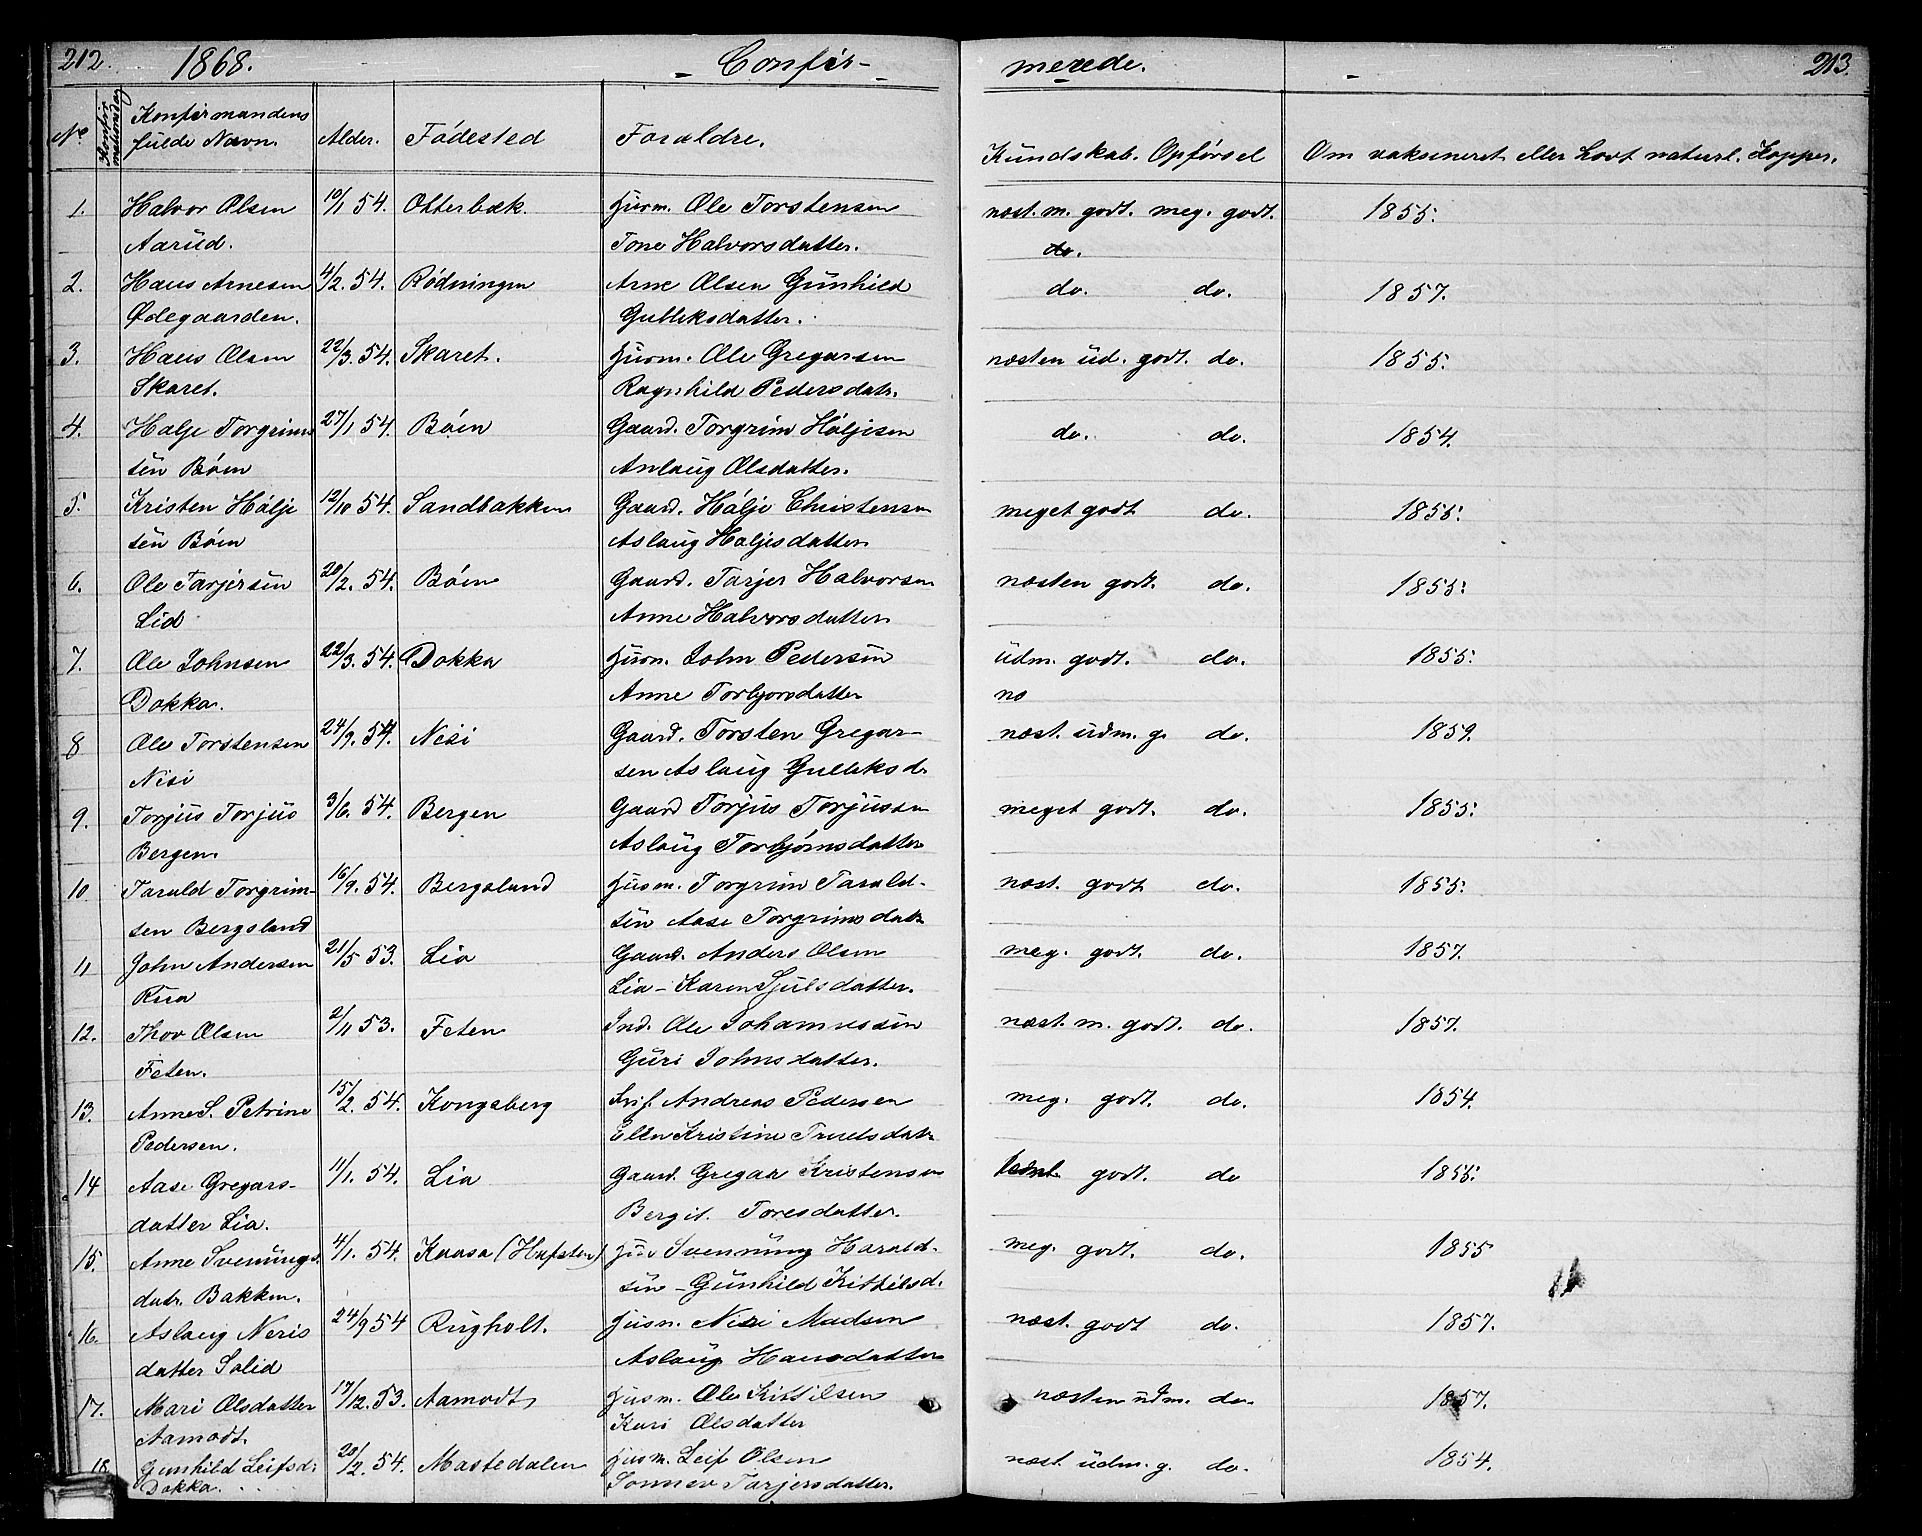 212. 1868. Confir- merede. 213.
No Konfirmationsdag Konfirmandens fulde Navn. Alder. Födested Foraldre. Kundskab. Opförsel Om vaksineret eller havt naturl. Kopper.
1. Halvor Olsen 10/1 54. Otterbæk. Husm. Ole Torstensen næst. m. godt. meg. godt. 1855.
Aarud. Tone Halvorsdatter. do.
2. Hans Arnesen 4/2. 54. Rödningen Arne Olsen Gunhild do. do. 1857.
Ödegaarden. Gulleksdatter.
3. Hans Olsen 22/3. 54. Skaret. Husm. Ole Gregarsen næsten ud. godt. do. 1855.
Skaret. Ragnhild Pedersdatr.
4. Halje Torgrims 27/1 54. Böen Gaard. Torgrim Höljesen do. do. 1854.
sen Böen Anlaug Olsdatter.
5. Kristen Hölje 12/10 54. Sandbakken Gaard. Hölje Christensen meget godt do. 1855.
sen Böen Aslaug Haljesdatter
6. Ole Tarjersen 20/2. 54. Böen Gaard. Tarjer Halvorsen næsten godt. do. 1855.
Lid Anne Halvorsdatter
7. Ole Johnsen 22/3. 54. Dokka Husm. John Pedersen udm. godt. do. 1855.
Dokka. Anne Torbjorsdatter no
8 Ole Torstensen 24/9. 54. Nisi Gaard. Torsten Gregar- næst. udm. g. do. 1859.
Nisi sen Aslaug Gulleksd.
9. Torjus Torjus 3/6. 54. Bergen Gaard Torjus Torjussen meget godt. do. 1855.
Bergen. Aslaug Torbjörnsdatter
10. Tarald Torgrim- 16/9. 54. Bergsland Husm. Torgrim Tarald- næst. godt do. 1855.
sen Bergsland sen Aase Torgrimsdatr
11 John Andersen 21/5 53. Lia Gaard. Anders Olsen meg. godt. do. 1857.
Rua Lia - Karen Tjulsdatter.
12. Thov Olsen 2/11 53. Feten Ind. Ole Johannessen næst. m. godt. do. 1857.
Feten. Guri Johnsdatter.
13. Anne S. Petrine 15/2. 54. Kongsberg Andreas Pedersen meg. godt. do. 1854.
Pedersen. Ellen Kristine Truelsdatr
14 Aase Gregars- 11/1. 54. Lia Gaard. Gregar Kristensen godt. do 1855.
datter Lia. Bergit. Toresdatter.
15. Anne Svenungs- 4/1. 54. Kaasa (Hafsten) Svennung Harald- meg. godt. do. 1855
datr. Bakken. sen - Gunhild Kittilsd.
16. Aslaug Neris 24/9 54 Rugholt. Husm. Neri Madsen næst. godt do. 1857.
datter Solid Aslaug Hansdatter
17. Mari Olsdatter 17/12. 53. Aamodt Husm. Ole Kittilsen næsten udm. do. 1857.
Aamodt. Kari Olsdatter
18 Gunhild Leifsd. 20/2. 54. Mastedalen Husm. Leif Olsen næst. udm. g. do. 1854.
Dokka. Sonnev Tarjersdatter.